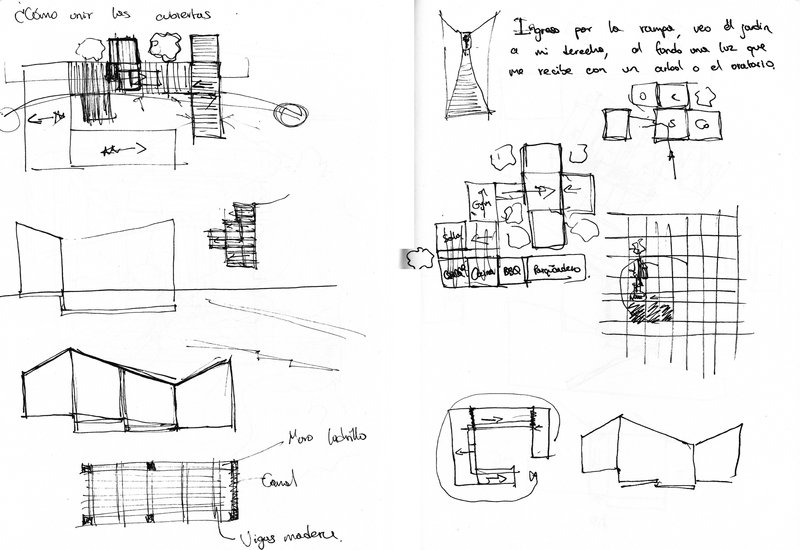 ¿Cómo unir las cubiertas
Muro ladrillo
Canal
Vigas madera.
Ingreso por la rampa, veo el jardín
a mi derecha, al fondo una luz que
me recibe con un arbol o el oratorio.
O C
S Co
Gym
Sala
Cocina BBQ Parqueadero